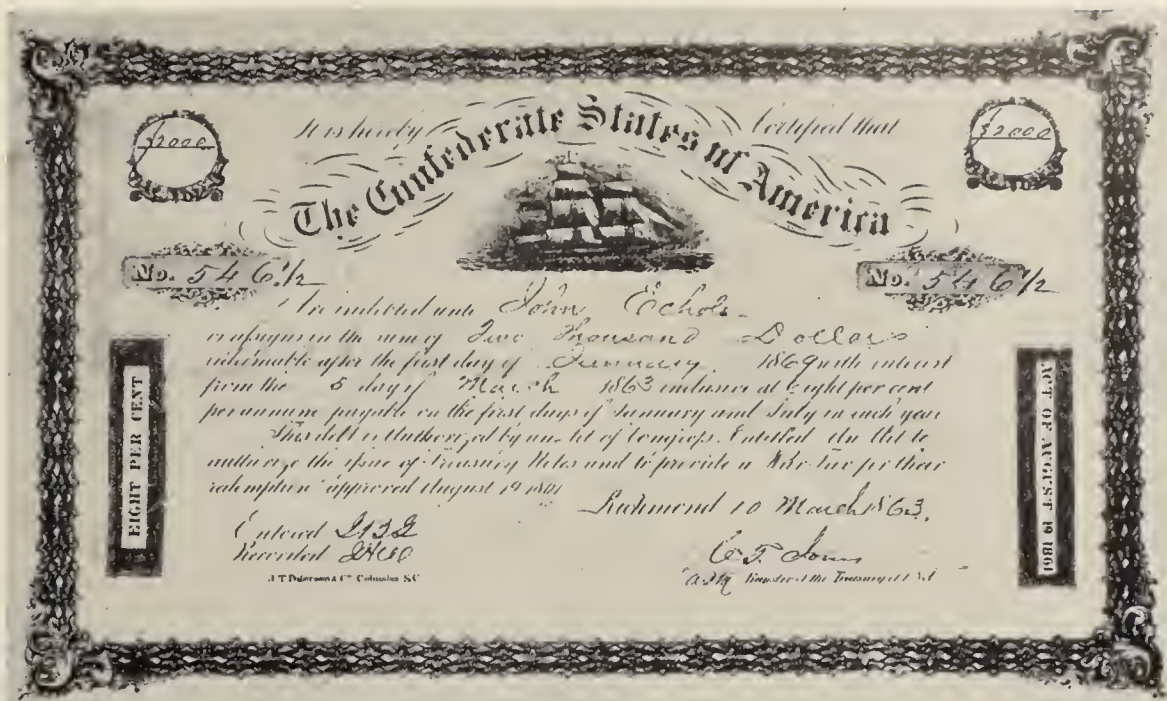 $2000
$2000
It is hereby Certified that
The Confederate States of America
No. 546½
No. 546½
Are indebted unto John Echols
or assigns in the sum of Two Thousand Dollars
redeemable after the first day of January 1869 with interest
from the 5 day of March 1863 inclusive at Eight per cent
per annum payable on the first days of January and July in each year
This debt is Authorized by an Act of Congress, Entitled "An Act to
authorize the issue of Treasury Notes and to provide a War Tax for their
redemption" approved August 19 1861
Richmond 10 March 1863.
Entered
Recorded
C. T. Jones
Register of the Treasury
J. T. Paterson & Co Columbia S.C
EIGHT PER CENT
ACT OF AUGUST 19 1861